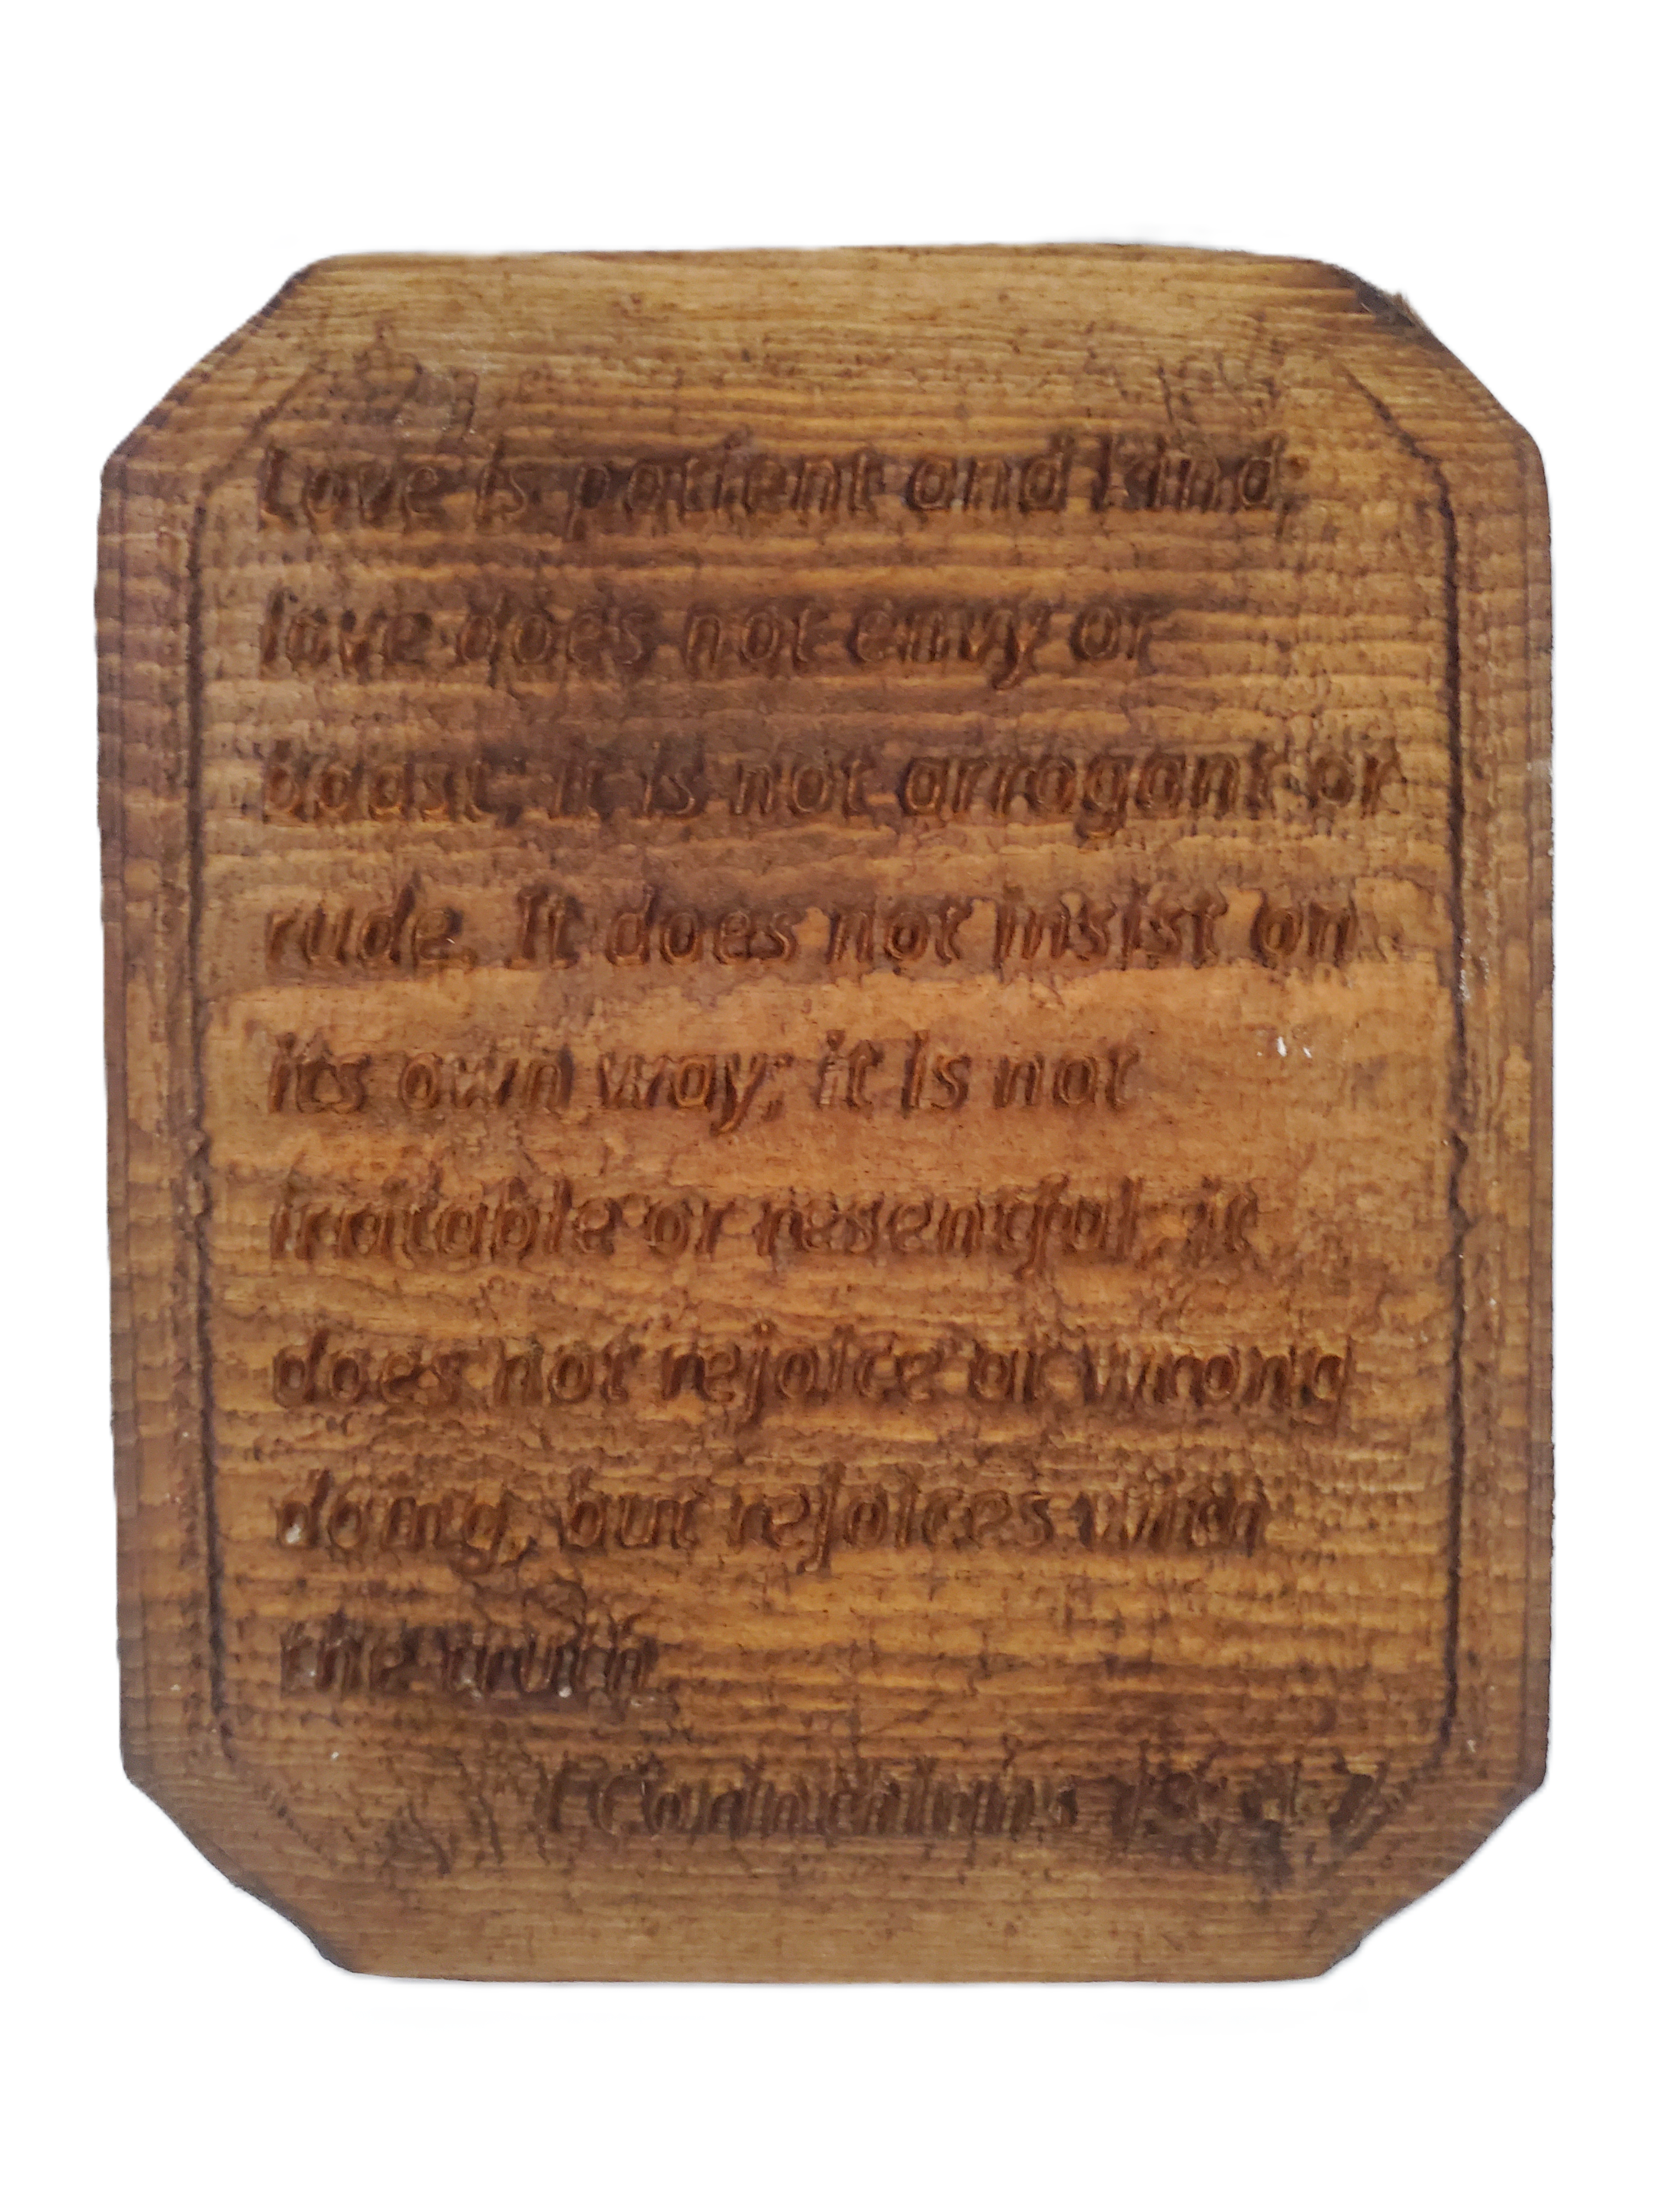 Love is patient and kind,
love does not envy or
boast, it is not arrogant or
rude. It does not insist on
its own way; it is not
irritable or resentful, it
does not rejoice at wrong
doing, but rejoices with
the truth.
1 Corinthians